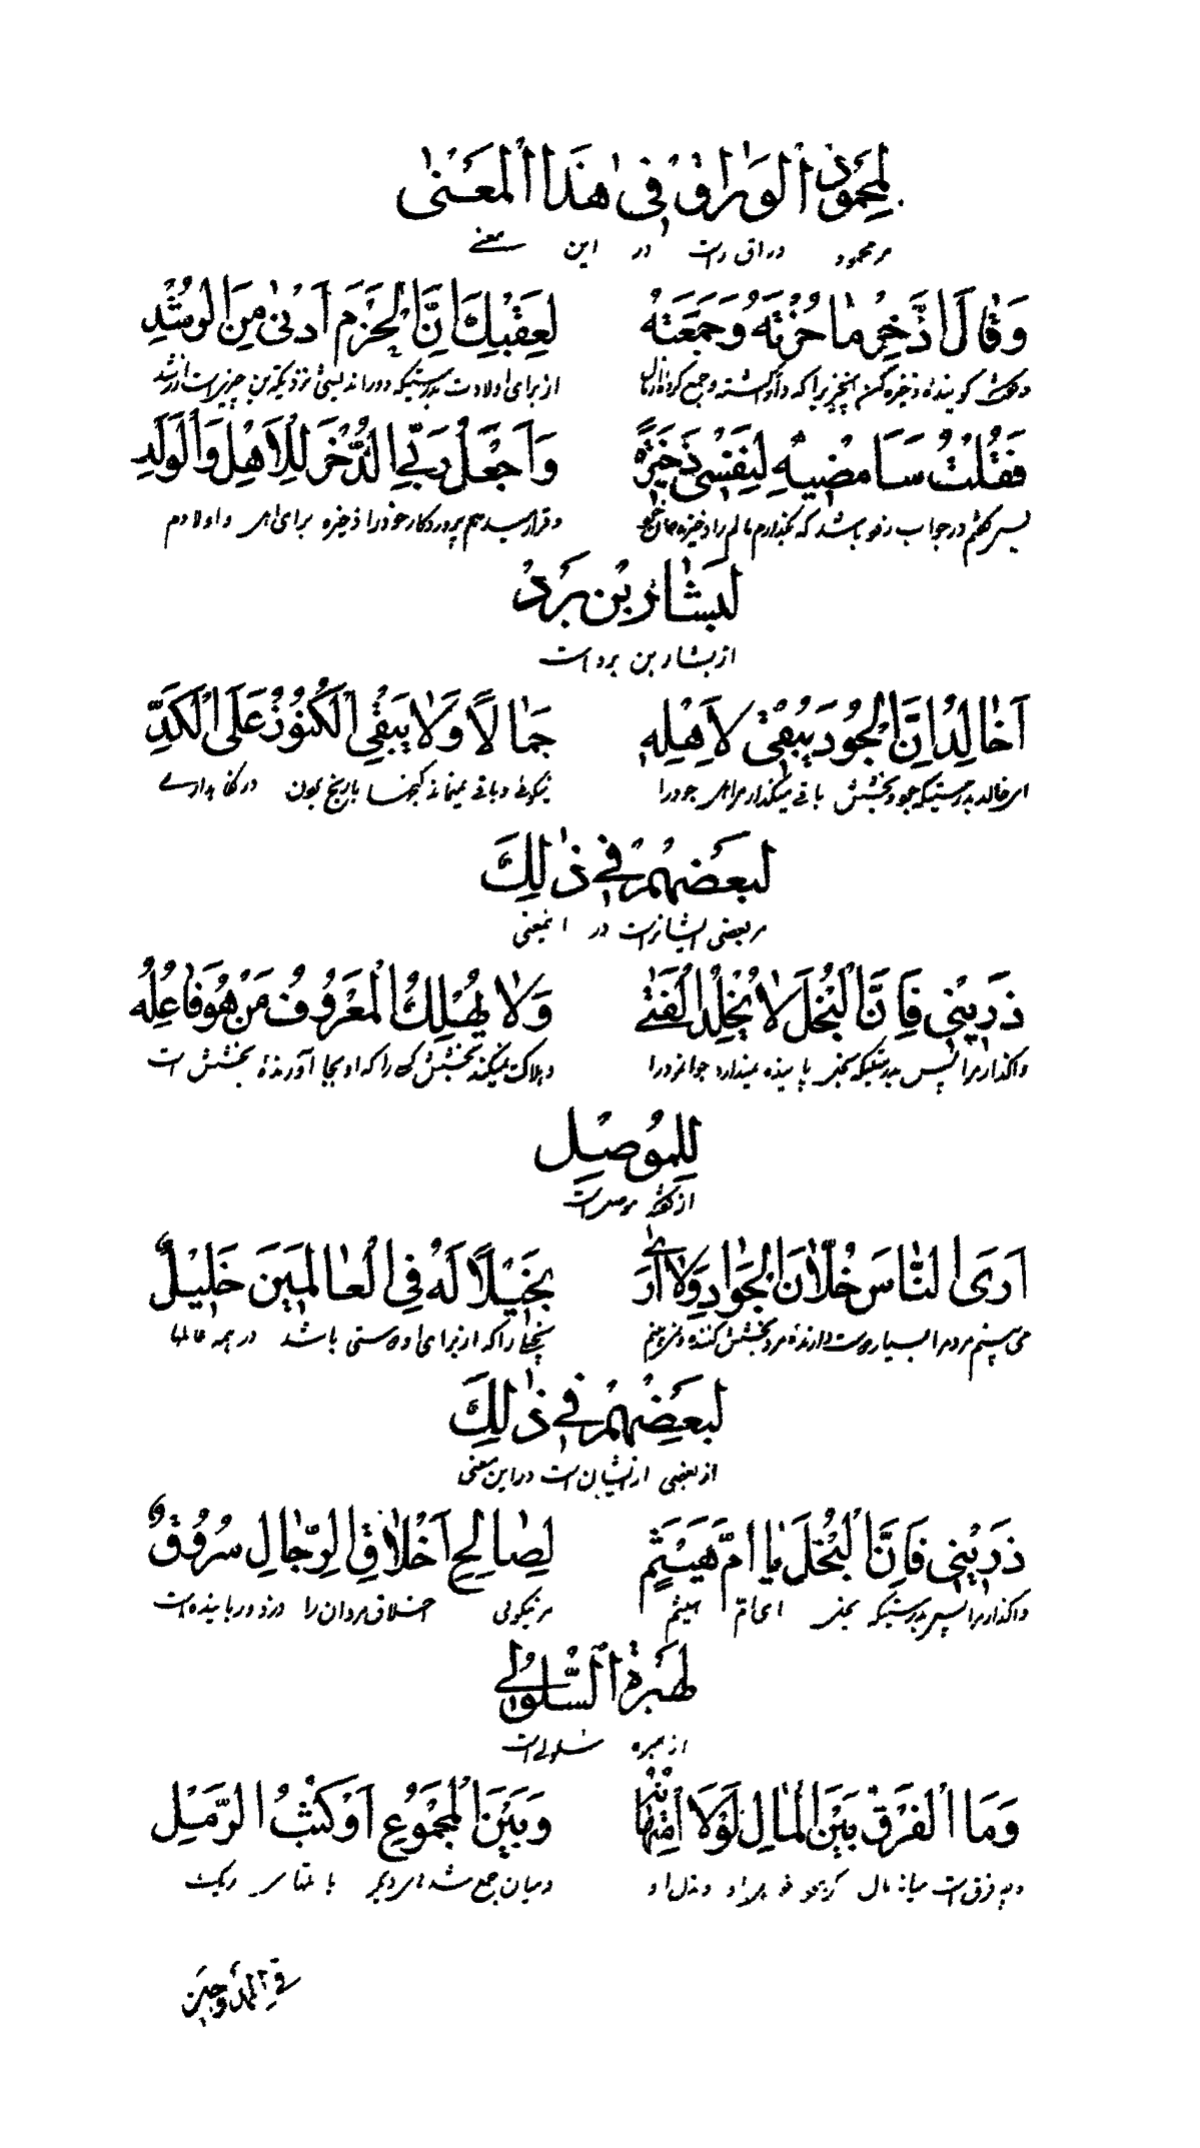 لِمَحْمُودٍ الْوَرَّاقِ فِي هٰذَا الْمَعْنٰى
مر محمود وراق راست در این معنے
وَقَالَ ادَّخِرْ مَا حُزْتَهُ وَجَمَعْتَهُ لِعَقْبِكَ اِنَّ الْحَزْمَ اَدْنٰى مِنَ الرُّشْدِ
از برای اولادت بدرستیکه دوراندیشی نزدیکترین چیزیست
فَقُلْتُ سَاَمْضِيهِ لِنَفْسِي ذَخِيرَةً وَاَجْعَلُ رَبِّي الذُّخْرَ لِلْاَهْلِ وَالْوَلَدِ
پس گفتم در جواب که بگذارم مالم را ذخیره و قرار میدهم پروردگار خود را ذخیره برای اهل و اولادم
لِبَشَّارِ بْنِ بُرْدٍ
از بشار بن برد است
اَخَالِدُ اِنَّ الْجُودَ يُبْقِي لِاَهْلِهِ جَمَالًا وَلَا يُبْقِي الْكُنُوزُ عَلَى الْكَدِّ
ای خالد بدرستیکه جود و بخشش باقی میگذارد مر اهل جود را نیکوئی و باقی نمیماند گنجها
لِبَعْضِهِمْ فِي ذٰلِكَ
مر بعضی ایشانراست در اینمعنی
ذَرِينِي فَاِنَّ الْبُخْلَ لَا يُخْلِدُ الْفَتٰى وَلَا يُهْلِكُ الْمَعْرُوفُ مَنْ هُوَ فَاعِلُهُ
واگذار مرا پس بدرستیکه بخل پاینده نمیدارد جوانمرد را و هلاک نمیکند بخشش کسی را که او بجا آورندهٔ بخشش است
لِلْمُوصِلِي
از گفته موصلی است
اَرَى النَّاسَ خُلَّانَ الْجَوَادِ وَلَا اَرٰى بَخِيلًا لَهُ فِي الْعَالَمِينَ خَلِيلٌ
می بینم مردم را بسیار دوست دارندهٔ مرد بخشش کننده و نمی بینم بخیل را که از برای او دوستی باشد در همه عالمها
لِبَعْضِهِمْ فِي ذٰلِكَ
از بعضی از ایشان است در این معنی
ذَرِينِي فَاِنَّ الْبُخْلَ يَا اُمَّ هَيْثَمٍ لِصَالِحِ اَخْلَاقِ الرِّجَالِ سَرُوقٌ
واگذار مرا پس بدرستیکه بخل ای ام هیثم مر نیکوئی اخلاق مردان را دزد و رباینده است
لِهُبَيْرَةَ السَّلُولِي
از هبیره سلولی است
وَمَا الْفَرْقُ بَيْنَ الْمَالِ لَوْلَا وَبَيْنَ الْمَجْمُوعِ اَوْ كُثُبُ الرَّمْلِ
و چه فرق است میانه مال و میان جمع شده